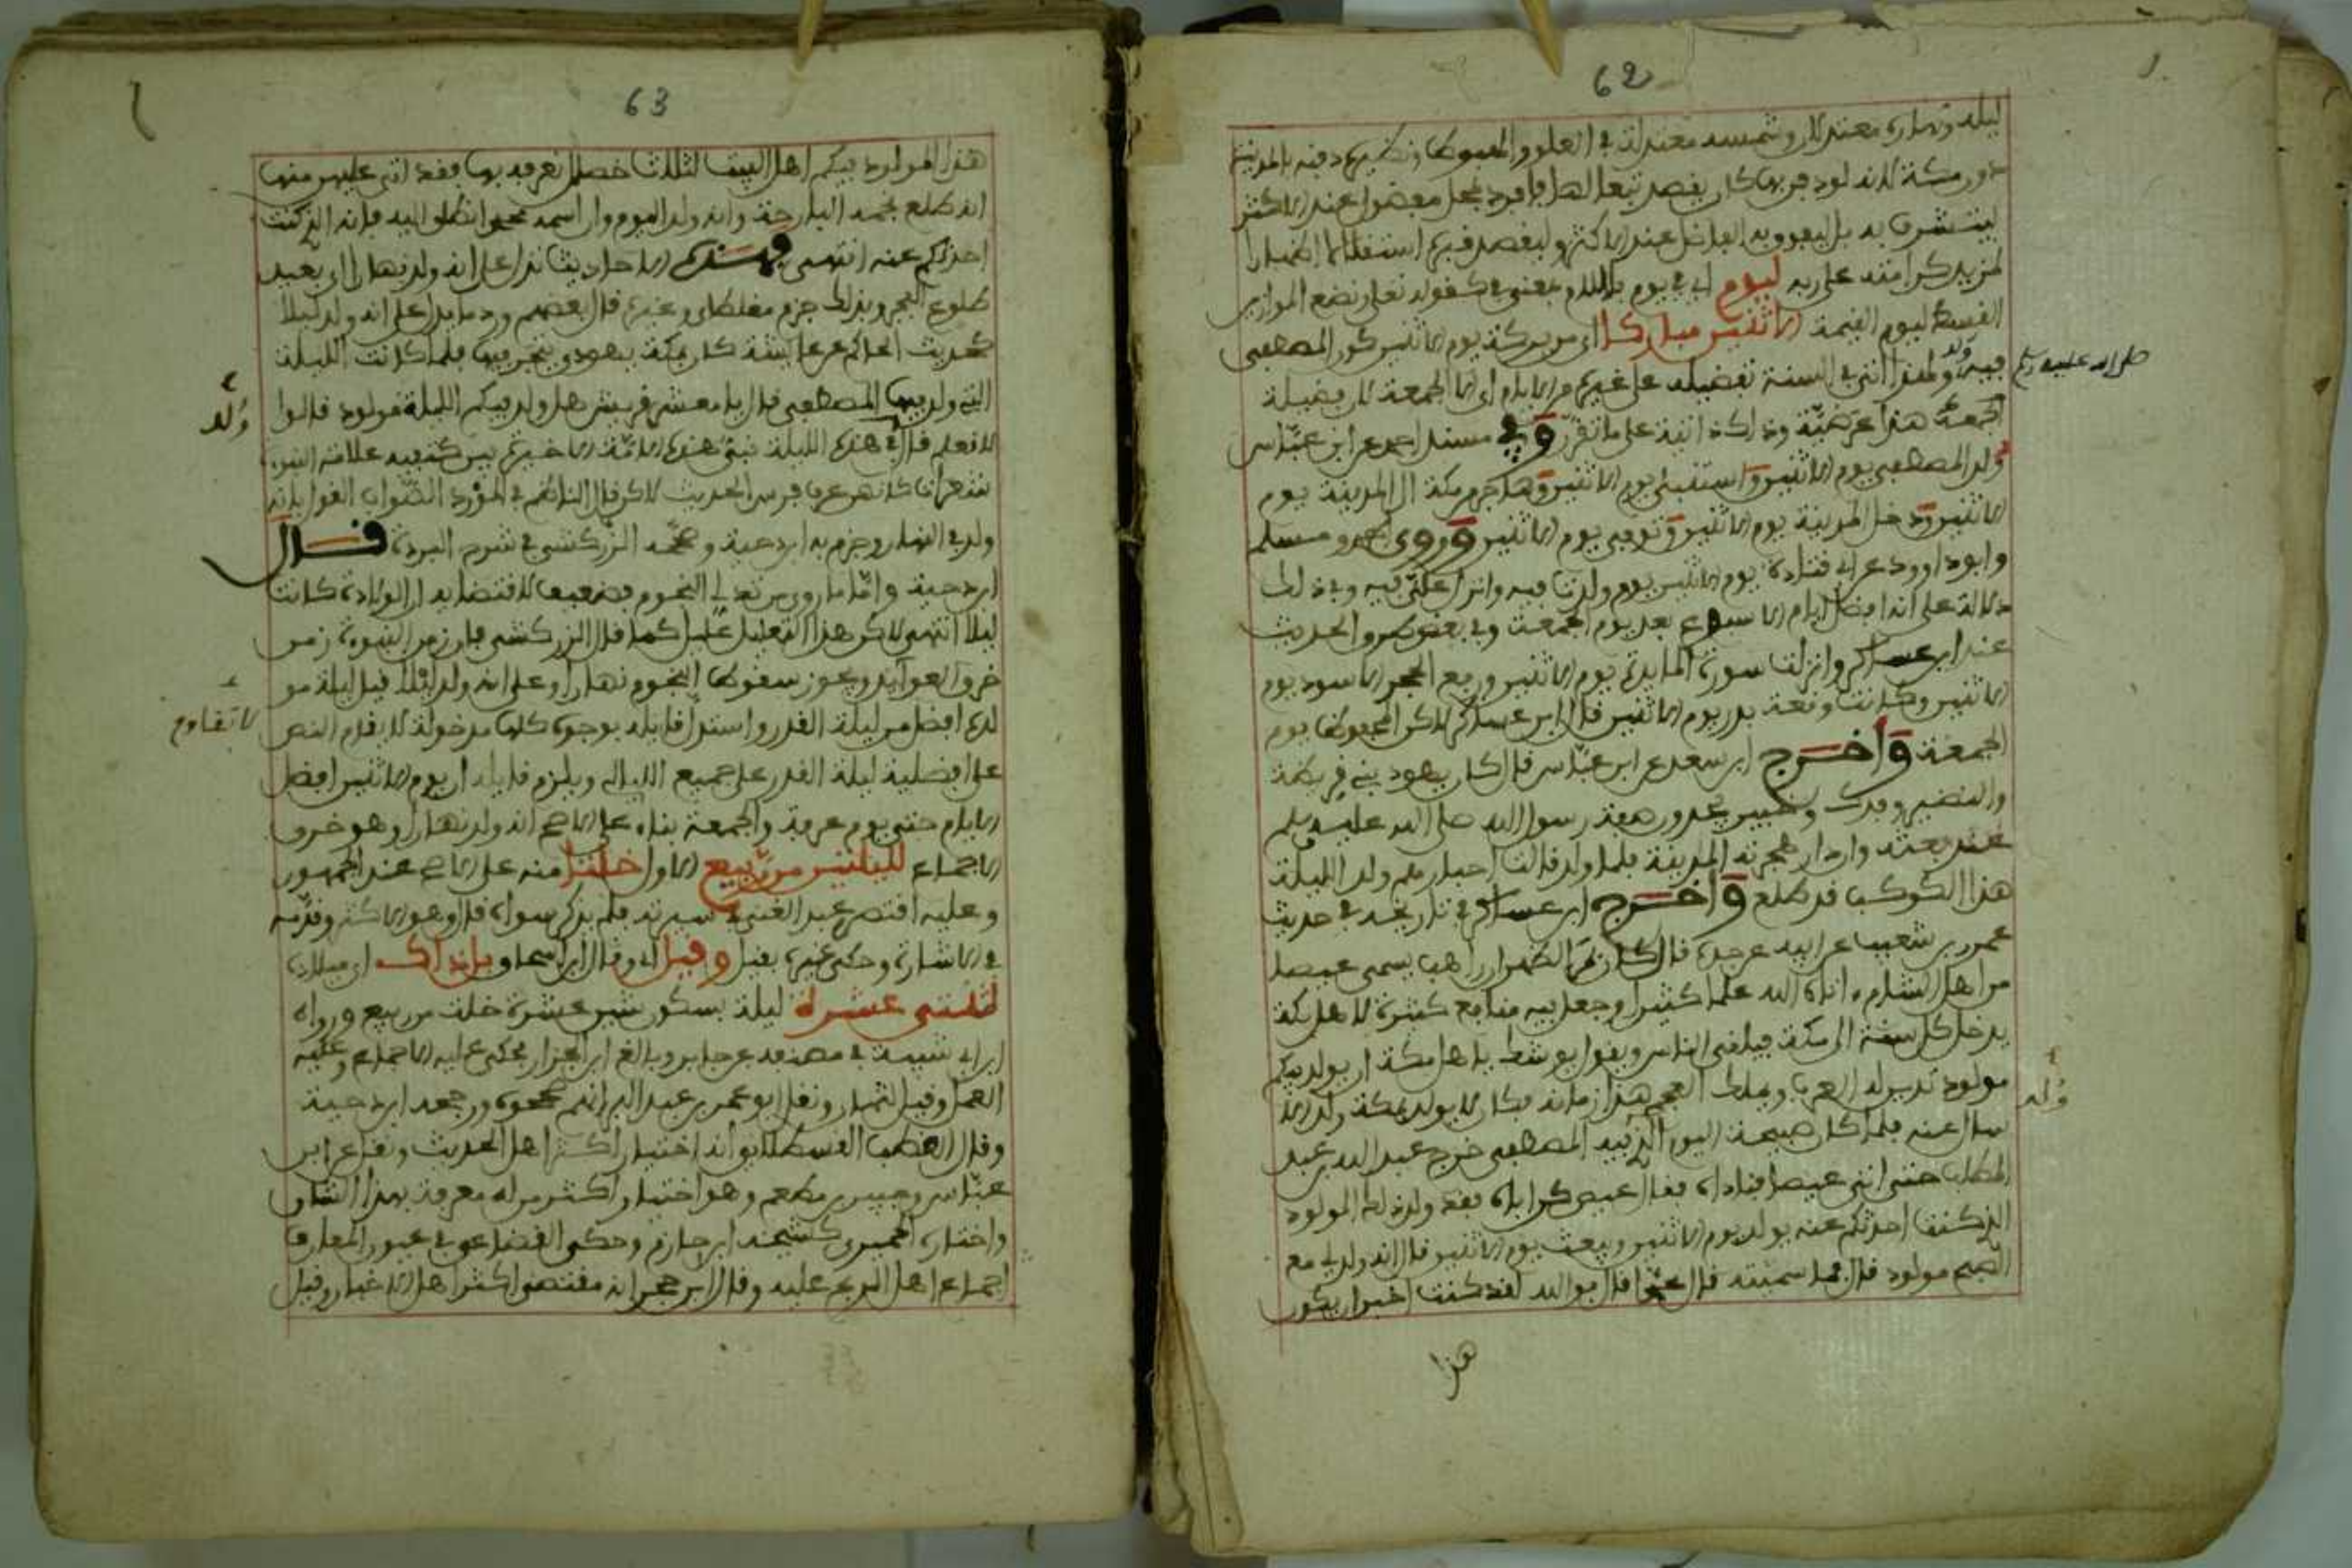 62
ليله ونهاره معتدلان وشمسه معتدلة في العلو والهبوط ونظيره دفنه بالمدينة
دون مكة لانه لو دفن بها كان يقصد تبعا لها فافرد بمحل مفضول عند الاكثر
ليتشرف به بل ليفوق به الفاضل عند الاكثر وليقصد فيه استقلالا اظهارا
لمزيد كرامته على ربه ليوم اي في يوم فاللام بمعنى في كقوله تعلى ونضع الموازين
القسط ليوم القيمة الاثنين مباركا اي من بركة يوم الاثنين كون المصطفى
صلى الله عليه وسلم
ولد
فيه ولهذا اتى في السنة تفضيله على غيره من الايام اي الا الجمعة لان فضيلة
الجمعة هذا عرضية وذاك ذاتية على ما تقرر وفي مسند احمد عن ابن عباس
ولد المصطفى يوم الاثنين واستنبئ يوم الاثنين وهاجر من مكة الى المدينة يوم
الاثنين ودخل المدينة يوم الاثنين وتوفي يوم الاثنين وروى احمد ومسلم
وابو داوود عن ابي قتادة يوم الاثنين يوم ولدت فيه وانزل علي فيه وفي ذلك
دلالة على انه افضل ايام الاسبوع بعد يوم الجمعة وفي بعض طرو الحديث
عند ابن عساكر وانزلت سورة المايدة يوم الاثنين ورفع الحجر الاسود يوم
الاثنين وكانت وقعة بدر يوم الاثنين قال ابن عساكر لاكن المحفوظ يوم
الجمعة واخرج ابن سعد عن ابن عباس قال كان يهود بني قريظة
والنضير وفدك وخيبر يجدون صفة رسول الله صلى الله عليه وسلم
عندهم قبل ان يبعث وان دار هجرته المدينة فلما ولد قالت احبارهم ولد الليلة
هذا الكوكب قد طلع واخرج ابن عساكر في تاريخه في حديث
عمرو بن شعيب عن ابيه عن جده قال كان بمر الظهران راهب يسمى عيصا
من اهل الشام اتاه الله علما كثيرا وجعل فيه منافع كثيرة لاهل مكة
يدخل كل سنة الى مكة فيلقى الناس ويقول يوشك يا اهل مكة ان يولد فيكم
مولود تدين له العرب ويملك العجم هذا زمانه فكان لا يولد بمكة ولد الا
ولد
سال عنه فلما كان صبيحة اليوم الذي فيه المصطفى خرج عبد الله بن عبد
المطلب حتى اتى عيصا فناداه فقال عيص كن اباه فقد ولد ذلك المولود
الذي كنت احدثكم عنه يولد يوم الاثنين ويبعث يوم الاثنين قال انه ولد لي مع
الصبح مولود قال فما سميته قال محمدا قال والله لقد كنت اخبر ان يكون
هذا
63
هذا المولود فيكم اهل البيت لثلاث خصال نعرفه بها فقد اتى عليهن منها
انه طلع نجمه البارحة وانه ولد اليوم وان اسمه محمد انطلق اليه فانه الذي كنت
احدثكم عنه انتهى فهذه الاحاديث تدل على انه ولد نهارا اي بعيد
طلوع الفجر وبذلك جزم مغلطاي وغيره قال بعضهم ورد ما يدل على انه ولد ليلا
كحديث الحاكم عن عايشة كان بمكة يهودي يتجر فيها فلما كانت الليلة
ولد
التي ولد فيها المصطفى قال يا معشر قريش هل ولد فيكم الليلة مولود قالوا
لا نعلم قال في هذه الليلة نبي هذه الامة الاخيرة بين كتفيه علامة فيها
شعرات كانهن عرف فرس الحديث لاكن قال الناظم في المورد الصواب القول بانه
ولد في النهار وجزم به ابن دحية وصححه الزركشي في شرح البردة قال
ابن دحية واما ما روي من تدلي النجوم فضعيف لاقتضايه ان الولادة كانت
ليلا انتهى لاكن هذا التعليل عليل كما قال الزركشي فان زمن النبوة زمن
خرو العوايد ويجوز سقوط النجوم نهارا وعلى انه ولد ليلا قيل ليلة مو
لده افضل من ليلة القدر واستدل قايله بوجوه كلها مدخولة لا يقاوم النص
لا تقاوم
على افضلية ليلة القدر على جميع الليالي ويلزم قايله ان يوم الاثنين افضل
الايام حتى يوم عرفة والجمعة بناء على الاصح انه ولد نهارا وهو خرو
الاجماع لليلتين من ربيع الاول خلتا منه على الاصح عند الجمهور
وعليه اقتصر عبد الغني في سيرته فلم يذكر سواه قال وهو الاكثر وقدمه
في الاشارة وحكى غيره بقيل وقيل اي وقال ابن اسحاق بل ذاك اي ميلاده
لثنتى عشرة ليلة بسكون شين عشرة خلت من ربيع ورواه
ابن ابي شيبة في مصنفه عن جابر وبالغ ابن الجزار فحكى عليه الاجماع وعليه
العمل وقيل لثمان ونقل ابو عمر بن عبد البر انهم صححوه ورجحه ابن دحية
وقال القطب القسطلاني انه اختيار اكثر اهل الحديث ونقل عن ابن
عباس وجبير بن مطعم وهو اختيار اكثر من له معرفة بهذا الشان
واختاره الحميدي كشيخه ابن حزم وحكى القضاعي في عيون المعارف
اجماع اهل الزيج عليه وقال ابن حجر انه مقتضى اكثر اهل الاخبار وقيل